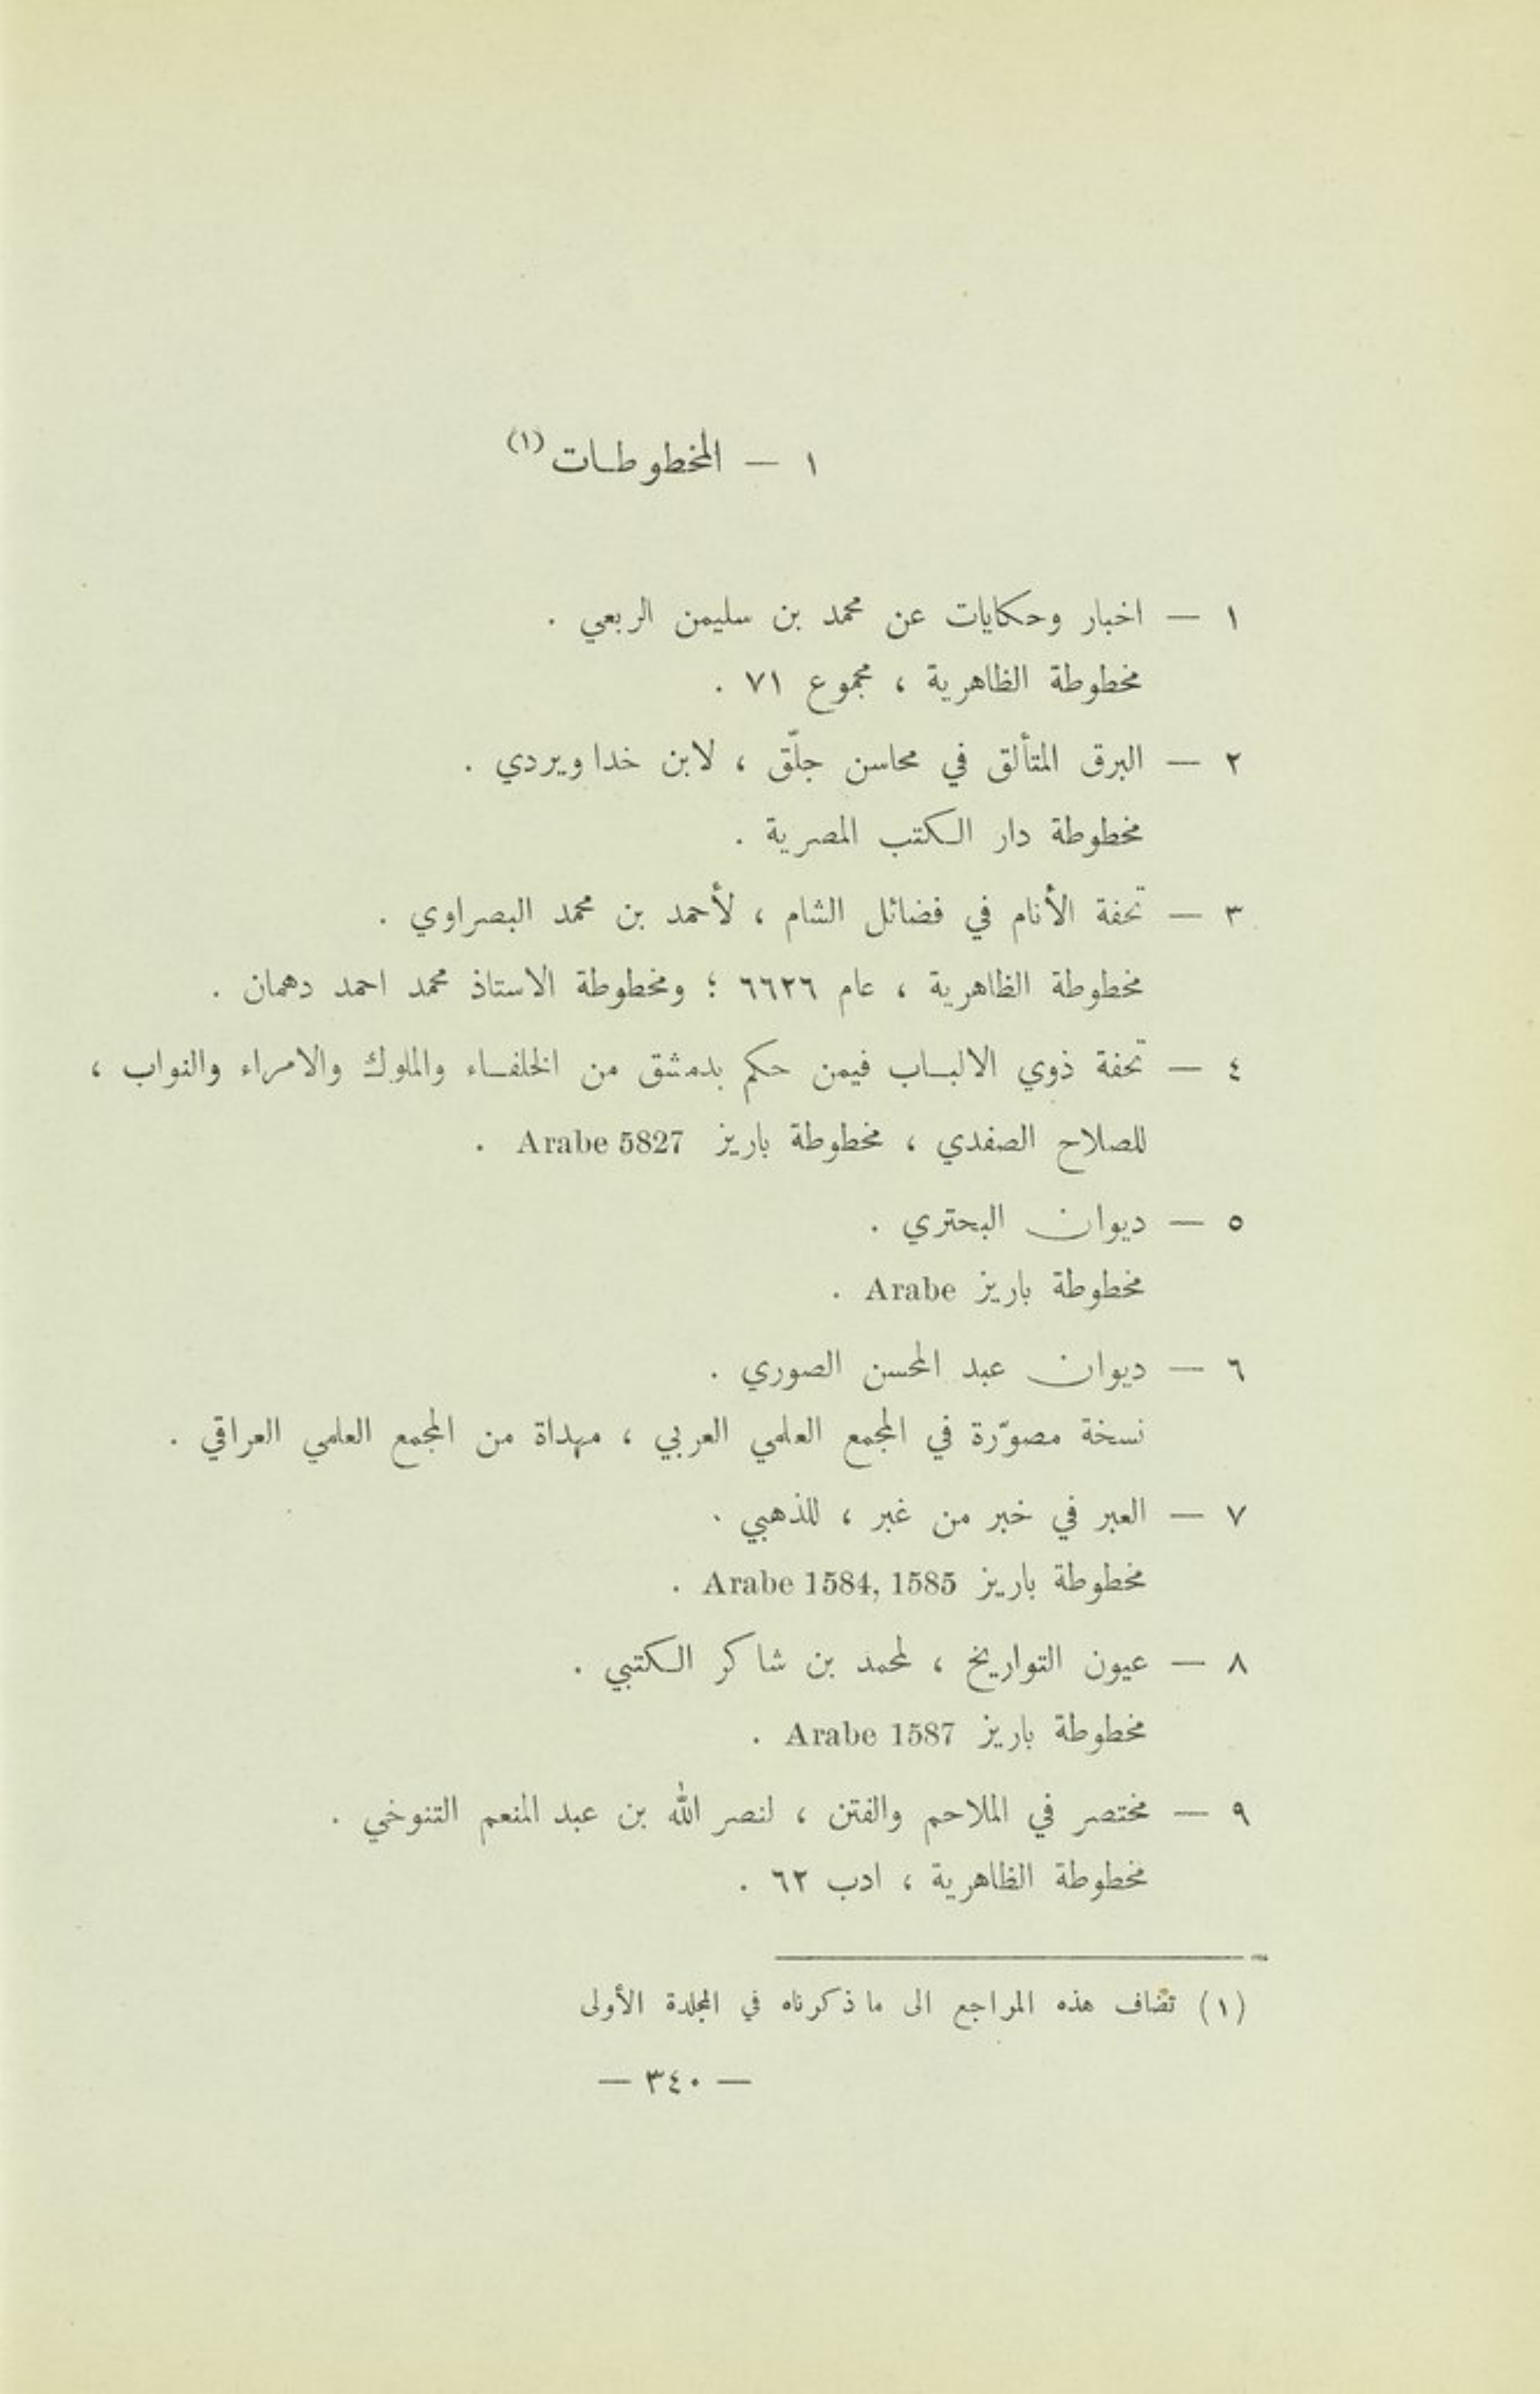 ١ — المخطوطـات (١)
١ — اخبار وحكايات عن محمد بن سليمن الربعي .
مخطوطة الظاهرية ، مجموع ٧١ .
٢ — البرق المتألق في محاسن جلّق ، لابن خداويردي .
مخطوطة دار الكتب المصرية .
٣ — تحفة الأنام في فضائل الشام ، لأحمد بن محمد البصراوي .
مخطوطة الظاهرية ، عام ٦٦٢٦ ؛ ومخطوطة الاستاذ محمد احمد دهمان .
٤ — تحفة ذوي الالبـاب فيمن حكم بدمشق من الخلفـاء والملوك والامراء والنواب ،
للصلاح الصفدي ، مخطوطة باريز Arabe 5827 .
٥ — ديوان البحتري .
مخطوطة باريز Arabe .
٦ — ديوان عبد المحسن الصوري .
نسخة مصوّرة في المجمع العلمي العربي ، مهداة من المجمع العلمي العراقي .
٧ — العبر في خبر من غبر ، للذهبي .
مخطوطة باريز Arabe 1584, 1585 .
٨ — عيون التواريخ ، لمحمد بن شاكر الكتبي .
مخطوطة باريز Arabe 1587 .
٩ — مختصر في الملاحم والفتن ، لنصر الله بن عبد المنعم التنوخي .
مخطوطة الظاهرية ، ادب ٦٢ .
(١) تضاف هذه المراجع الى ما ذكرناه في المجلدة الأولى
— ٣٤٠ —